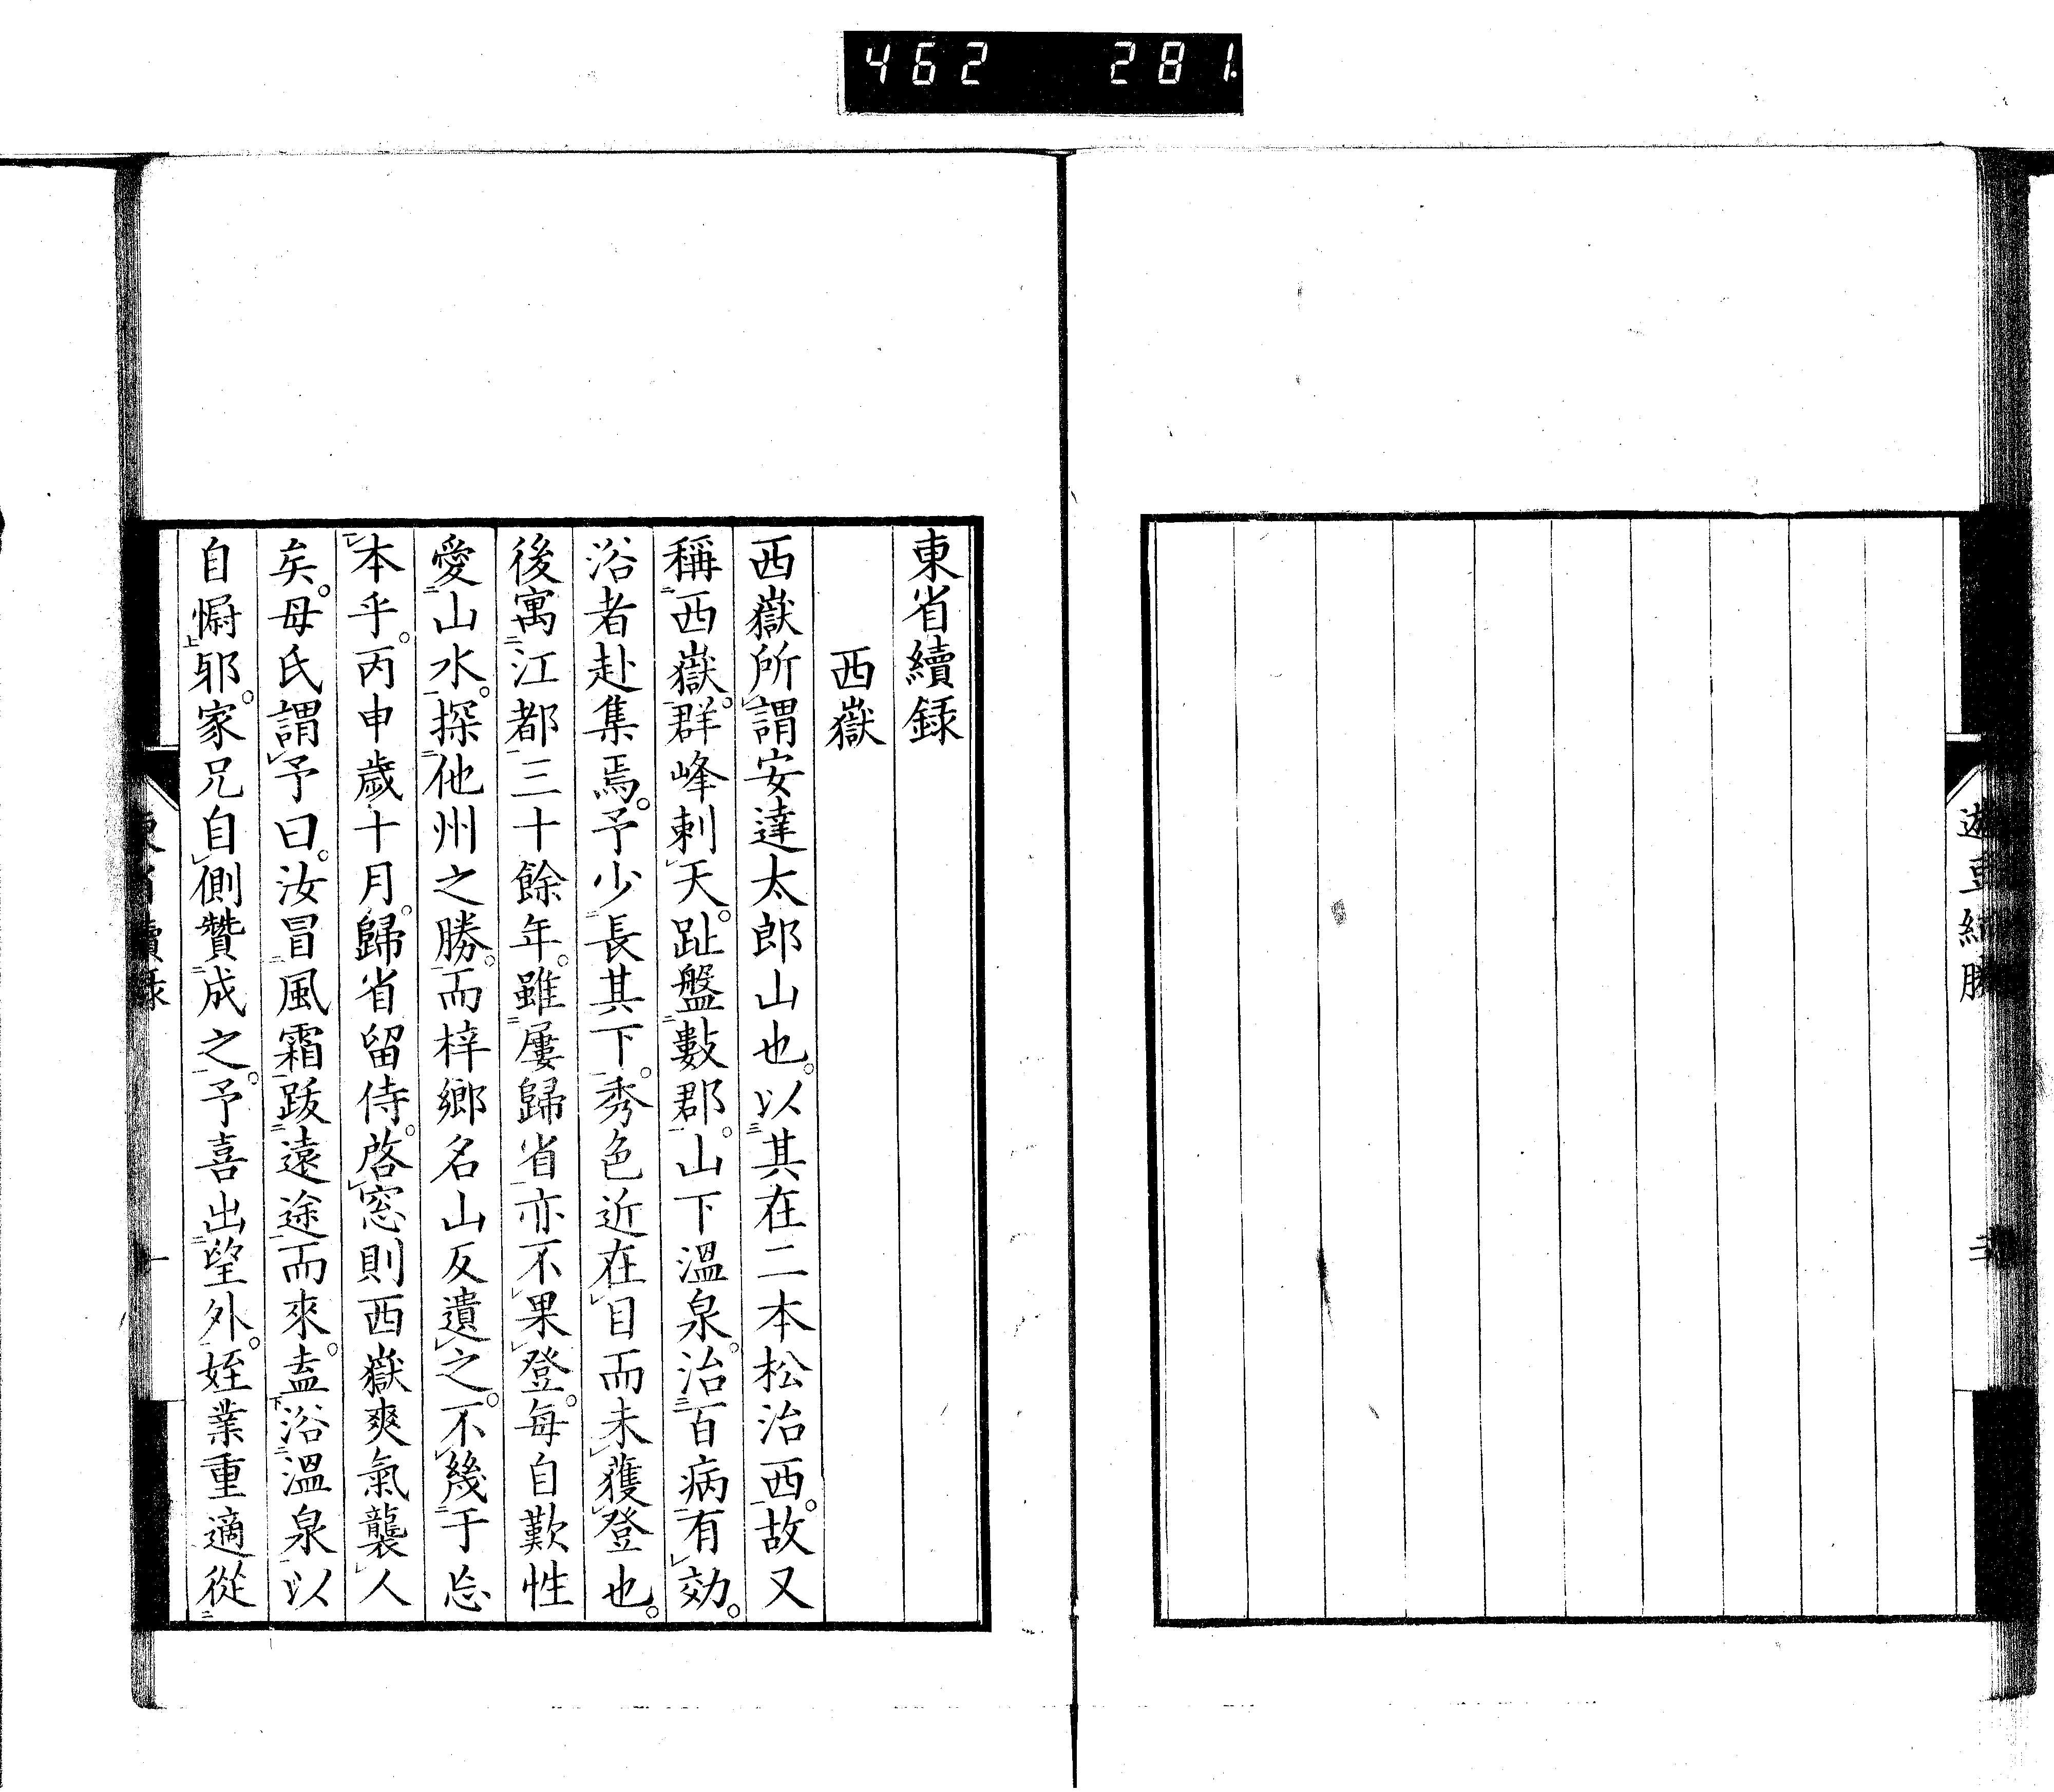 462 281
東省續録
西嶽
西嶽所謂安達太郎山也。以其在二本松治西。故又
稱西嶽。群峰刺天。趾盤數郡。山下溫泉。治百病有効。
浴者赴集焉。予少長其下。秀色近在目而未獲登也。
後寓江都三十餘年。雖屢歸省亦不果登。每自歎性
愛山水。探他州之勝。而梓鄉名山反遺之。不幾于忘
本乎。丙申歲十月。歸省留侍。啓窓則西嶽爽氣襲人
矣。母氏謂予曰。汝冒風霜跋遠途而來。盍浴溫泉以
自慰邪。家兄自側贊成之。予喜出望外。姪業重適從